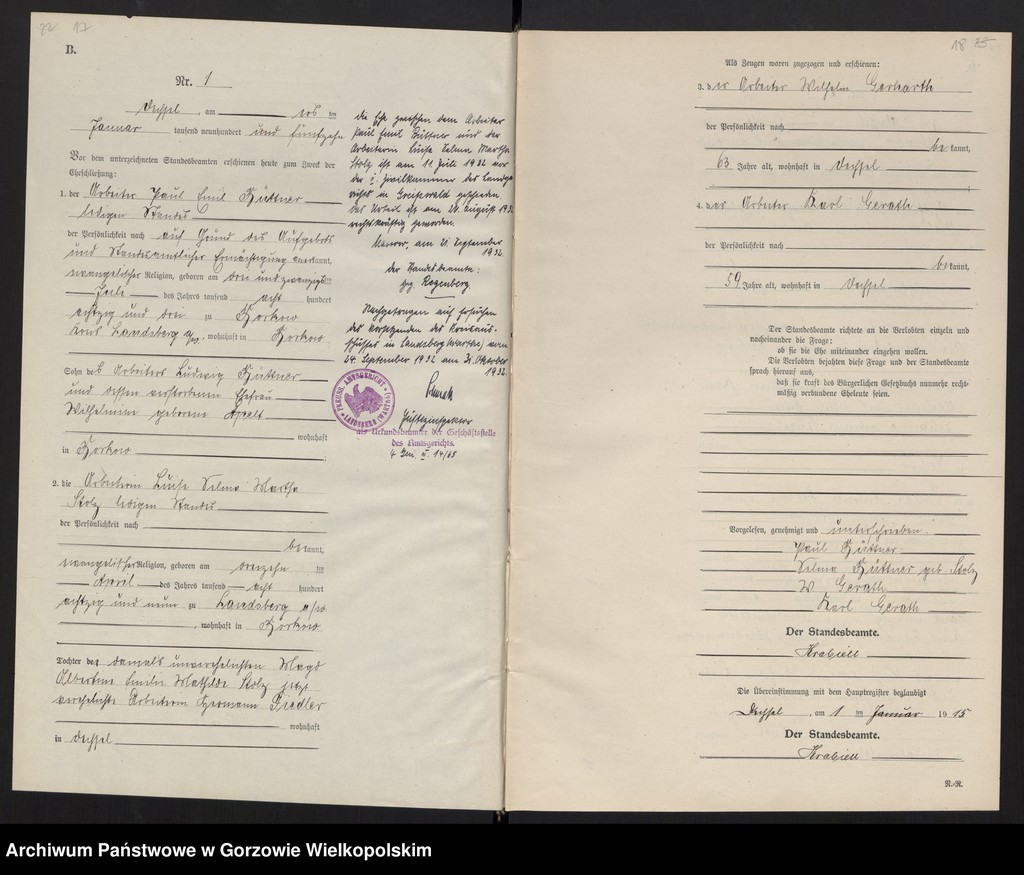 22 17
B.
Nr. 1
Dechsel, am ersten
Januar tausend neunhundert und fünfzehn
Vor dem unterzeichneten Standesbeamten erschienen heute zum Zweck der
Eheschließung:
1. der Arbeiter Paul Emil Küttner
ledigen Standes
der Persönlichkeit nach auf Grund des Aufgebots
und Standesamtlicher Ermächtigung anerkannt,
evangelischer Religion, geboren am drei und zwanzigsten
des Jahres tausend acht hundert
achtzig und drei zu Borkow
Kreis Landsberg a/W., wohnhaft in Borkow
Sohn des Arbeiters Ludwig Küttner
und dessen verstorbenen Ehefrau
Wilhelmine geborene
wohnhaft
in Borkow
2. die Arbeiterin Luise Selma Martha
Stolz ledigen Standes
der Persönlichkeit nach
bekannt,
evangelischer Religion, geboren am dreizehnten
April des Jahres tausend acht hundert
achtzig und neun zu Landsberg a/W.
, wohnhaft in Borkow
Tochter der damals unverehelichten Magd
Albertine Emilie Mathilde Stolz jetzt
verehelichte Arbeiterin Hermann Fiedler
wohnhaft
in Dechsel
Die Ehe zwischen dem Arbeiter
Paul Emil Küttner und der
Arbeiterin Luise Selma Martha
Stolz ist am 11. Juli 1932 von
der I. Zivilkammer des Landge-
richts in Greifswald geschieden.
Das Urteil ist am 24. August 1932
rechtskräftig geworden.
am 21. September
1932.
Der Standesbeamte:
gez. Regenberg
Nachgetragen auf Ersuchen
des Vorsitzenden des Kreisaus-
schusses in Landsberg (Warthe) vom
24. September 1932 am 31. Oktober
1932.
PREUSS. AMTSGERICHT
LANDSBERG (WARTHE)
Justizinspektor
als Urkundsbeamter der Geschäftsstelle
des Amtsgerichts.
18 23
Als Zeugen waren zugezogen und erschienen:
3. der Arbeiter Wilhelm Gerharth
der Persönlichkeit nach
bekannt,
63 Jahre alt, wohnhaft in Dechsel
4. der Arbeiter Karl Gerath
der Persönlichkeit nach
bekannt,
59 Jahre alt, wohnhaft in Dechsel
Der Standesbeamte richtete an die Verlobten einzeln und
nacheinander die Frage:
ob sie die Ehe miteinander eingehen wollen.
Die Verlobten bejahten diese Frage und der Standesbeamte
sprach hierauf aus,
daß sie kraft des Bürgerlichen Gesetzbuchs nunmehr recht-
mäßig verbundene Eheleute seien.
Vorgelesen, genehmigt und unterschrieben.
Paul Küttner
Selma Küttner geb. Stolz
W. Gerath
Karl Gerath
Der Standesbeamte.
Die Übereinstimmung mit dem Hauptregister beglaubigt
Dechsel, am 1 ten Januar 1915
Der Standesbeamte.
N.-R.
Archiwum Państwowe w Gorzowie Wielkopolskim